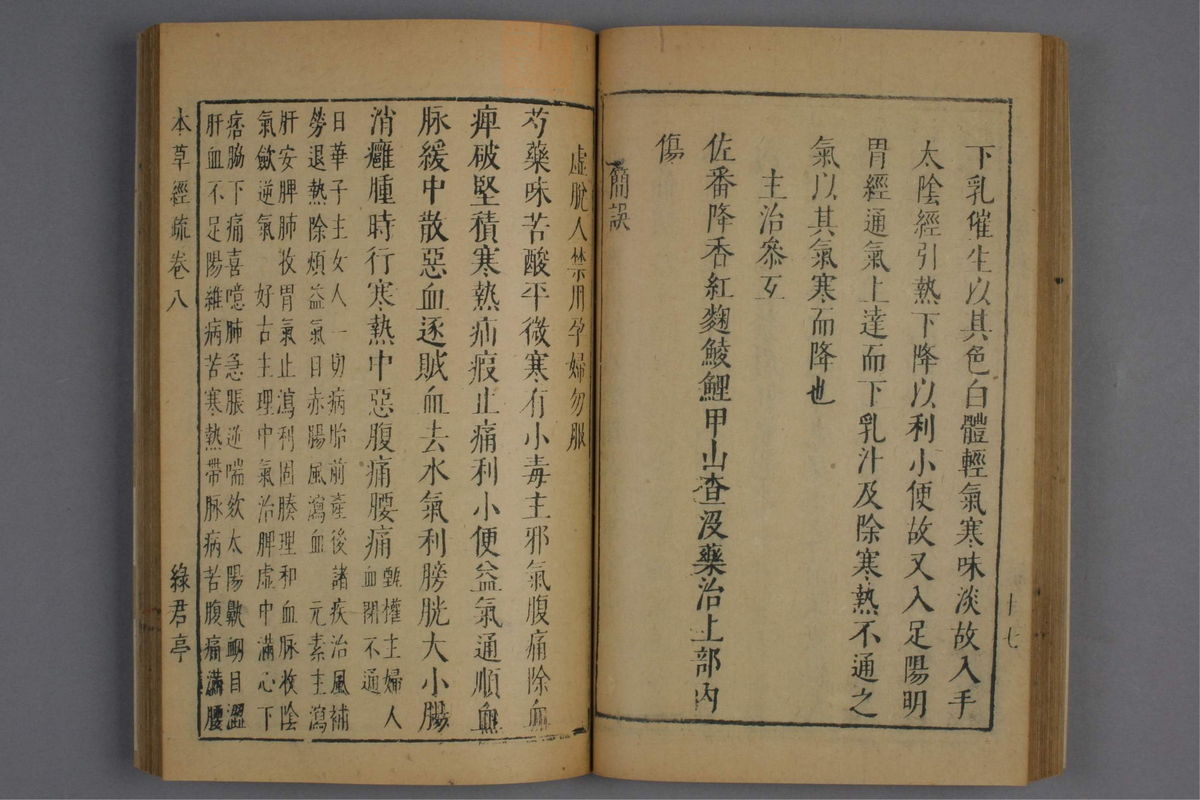 下乳催生以其色白體輕氣寒味淡故入手
太陰經引熱下降以利小便故又入足陽明
胃經通氣上達而下乳汁及除寒熱不通之
氣以其氣寒而降也
主治參互
佐番降香紅麴鯪鯉甲山查沒藥治上部內
傷
簡誤
虛脫人禁用孕婦勿服
芍藥味苦酸平微寒有小毒主邪氣腹痛除血
痺破堅積寒熱疝瘕止痛利小便益氣通順血
脉緩中散惡血逐賊血去水氣利膀胱大小腸
消癰腫時行寒熱中惡腹痛腰痛
甄權主婦人
血閉不通
日華子主女人一切病胎前產後諸疾治風補
勞退熱除煩益氣目赤腸風瀉血 元素主瀉
肝安脾肺收胃氣止瀉利固腠理和血脉收陰
氣斂逆氣 好古主理中氣治脾虛中滿心下
痞脇下痛喜噫肺急脹逆喘欬太陽鼽衂目澀
肝血不足陽維病苦寒熱帶脉病苦腹痛滿腰
本草經疏卷八
綠君亭